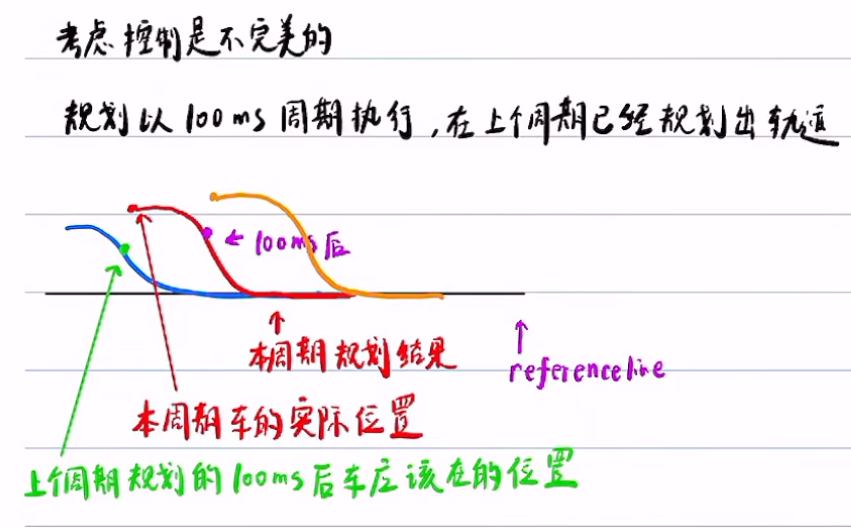 考虑控制是不完美的
规划以100ms周期执行，在上个周期已经规划出轨迹
←100ms后
本周期规划结果
referenceline
本周期车的实际位置
上个周期规划的100ms后车应该在的位置